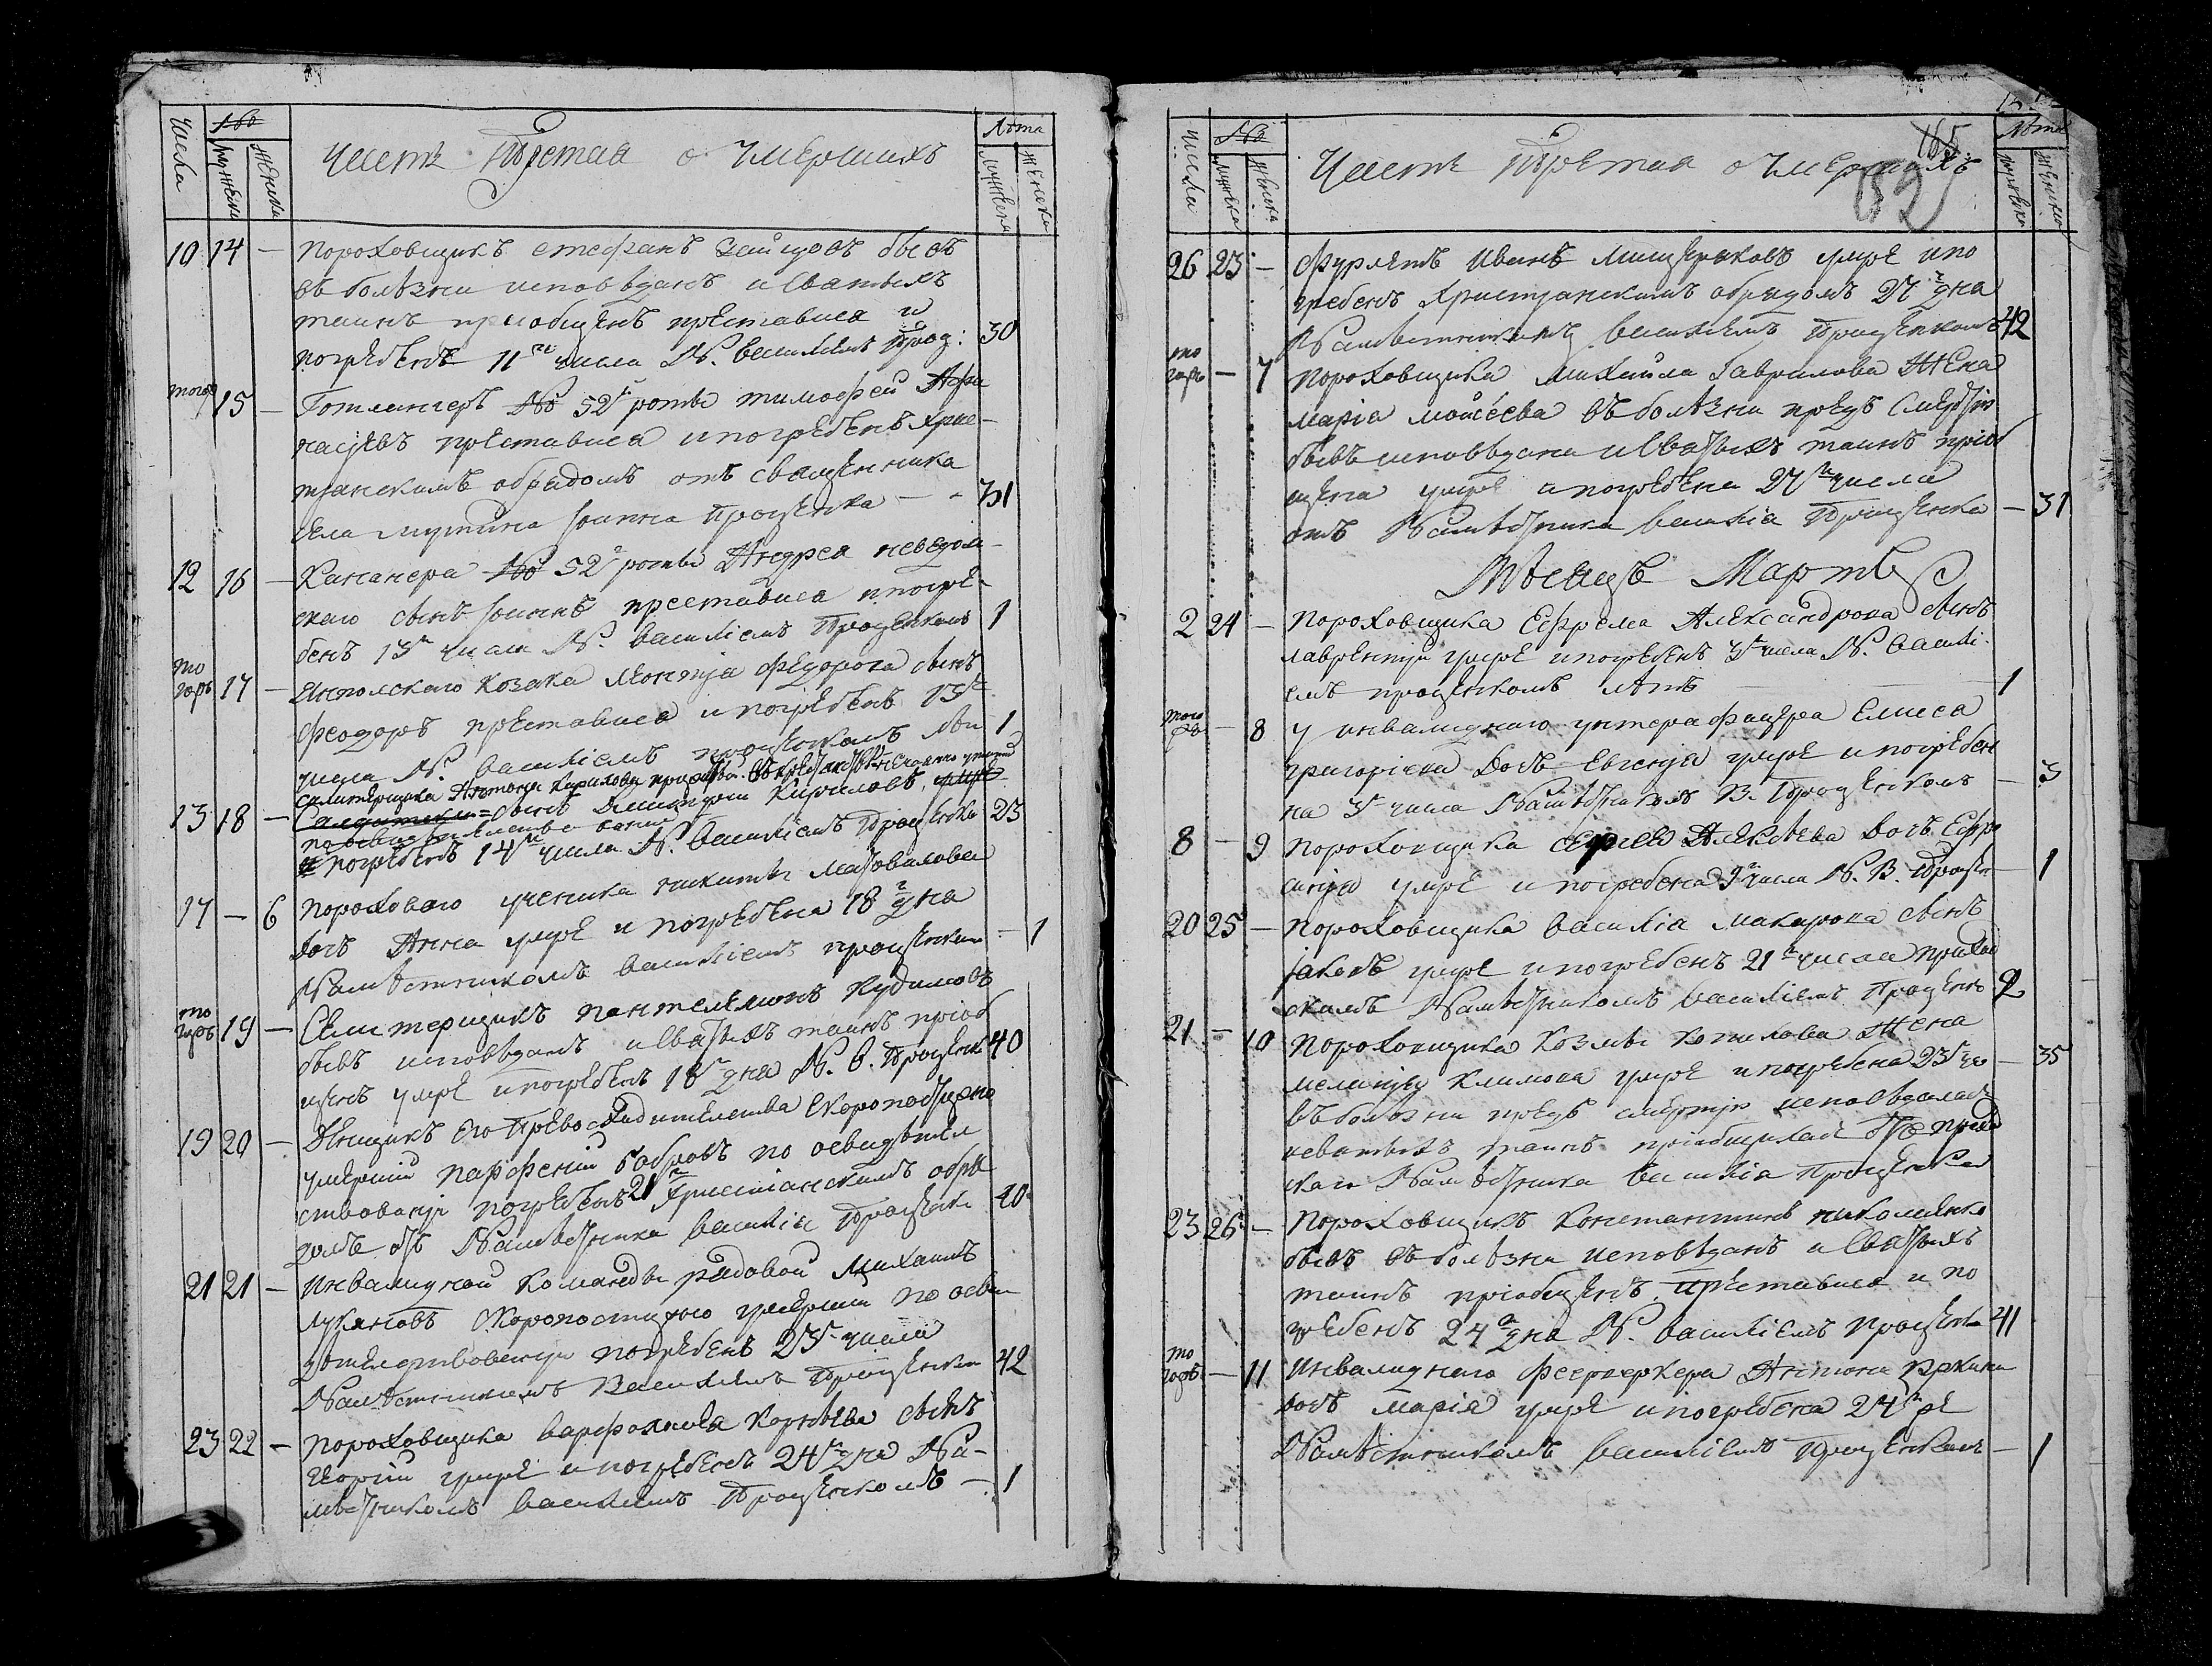 Числа № мужеска женска Часть Третая о Умершихъ Лѣта мужеска женска
10 14 — Пороховщикъ Стефанъ Зайцовъ бывъ
въ болѣзни исповѣданъ и Святыхъ
таинъ приобщенъ преставися и
погребенъ 11го числа Н. Василиемъ Проц: 30
тогоже 15 — Готлангеръ № 52й роты Тимофей Афа
насьевъ преставися и погребенъ Хрис-
тианскимъ обрядомъ отъ священника
села Мутина Iоанна Проценка — 31
12 16 — Кананера № 52й роты Андрея Неведом
скаго сынъ Iоаннъ преставися и погре-
бенъ 13го числа Н. Василiемъ Проценкомъ 1
того 17 — Янполскаго козака Леонтiя Федорова сынъ
Феодоръ преставися и погребенъ 13го
числа Н. Василiемъ Проценкомъ 1
селитерщика Антона Кирилова
13 18 — сынъ Кириловъ
погребенъ 14го числа Н. Василiемъ Проценко 23
17 — 6 Пороховаго ученика Никиты
дочь Анна умре и погребена 18го дна
Намѣстникомъ Василiемъ Проценкомъ — 1
того 19 — Селитерщикъ Пантелемонъ Кудимовъ
бывъ исповѣданъ и Святыхъ таинъ прiоб
щенъ умре и погребенъ 18го дна Н. В. Проценк 40
19 20 — Денщикъ Его Превосходителства скоропостижно
умершiй Парфенiй Бобровъ по освидѣтел
ствованiи погребенъ 21го Христiанскимъ обря
домъ отъ Намѣстника Василiя Проценки 40
21 21 — Инвалидной команды рядовой Михаилъ
Лукановъ скоропостижно умершiи по осви
дѣтелствованiи погребенъ 23го числа
Намѣстникомъ Василiемъ Проценком 42
23 22 — Пороховщика Варфоломея Корнѣева сынъ
Георгiй умре и погребенъ 24го дна На-
мѣстникомъ Василiемъ Проценкомъ — 1
165
Числа № мужеска женска Часть Третая о Умершихъ Лѣта мужеска женска
26 23 — Фурлетъ Иванъ Мищеряковъ умре и по
гребенъ Христiанскимъ обрядомъ 27го дна
Намѣстникомъ Василiемъ Проценкомъ 42
того — 7 Пороховщика Михайла Гаврилова жена
Марiа Моисеева въ болѣзни предъ смертiю
бывъ исповѣдана и Святыхъ таинъ прiоб
щена умре и погребена 27го числа
отъ Намѣстника Василiа Проценка — 31
Мѣсяцъ Мартъ
2 24 — Пороховщика Ефрема Александрова сынъ
Лаврентiй умре и погребенъ 3го числа Н. Васили-
емъ Проценкомъ лѣтъ — 1
того — 8 У инвалиднаго унтерафицера Елисеа
Григорiева дочь Евгенiа умре и погребен
на 3го числа Намѣстникомъ В. Проценкомъ — 3
8 — 9 Пороховщика Сергея Алексѣева дочь Ефро
синiа умре и погребена 9го числа Н. В. Процен — 1
20 25 — Пороховщика Василiа Макарова сынъ
Iаковъ умре и погребенъ 21го числа приход
скимъ Намѣстникомъ Василiемъ Проценк 2
21 — 10 Пороховщика Козмы Копилова жена
Меланiя Климова умре и погребена 23го чи — 35
въ болѣзни предъ смертiю исповѣдалась
и святыхъ таинъ прiобщилась отъ приход
скаго Намѣстника Василiа Проценка
23 26 — Пороховщикъ Константинъ Николаенко
бывъ въ болѣзни исповѣданъ и Святыхъ
таинъ прiобщенъ, преставися и по
гребенъ 24го дна Н. Василiемъ Проценк 41
того — 11 Инвалиднаго феерверкера Антона
дочь Марiа умре и погребена 24го
Намѣстникомъ Василiемъ Проценком — 1